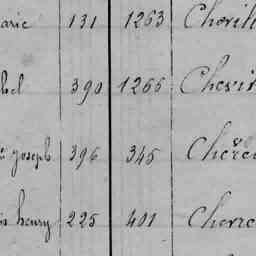 arie 131 1263 Cheril
bel 390 1266 Chevi
joseph 396 345 Chere
henry 225 401 Cherre